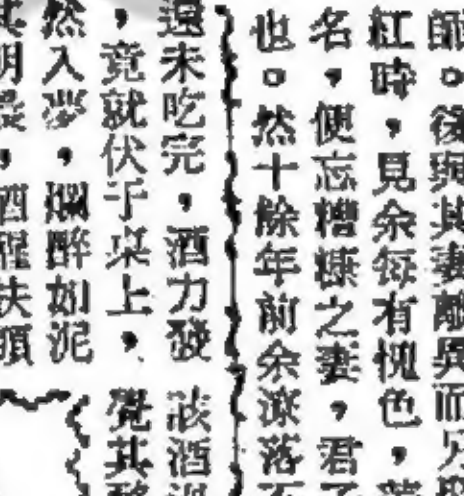 師。後與其妻離異而
紅時，見余每有愧色，
名，便忘糟糠之妻，君
也。然十餘年前余潦落
還未吃完，酒力發
，竟就伏于桌上，
然入夢，爛醉如泥
明晨，酒醒扶頭
該酒
覺其